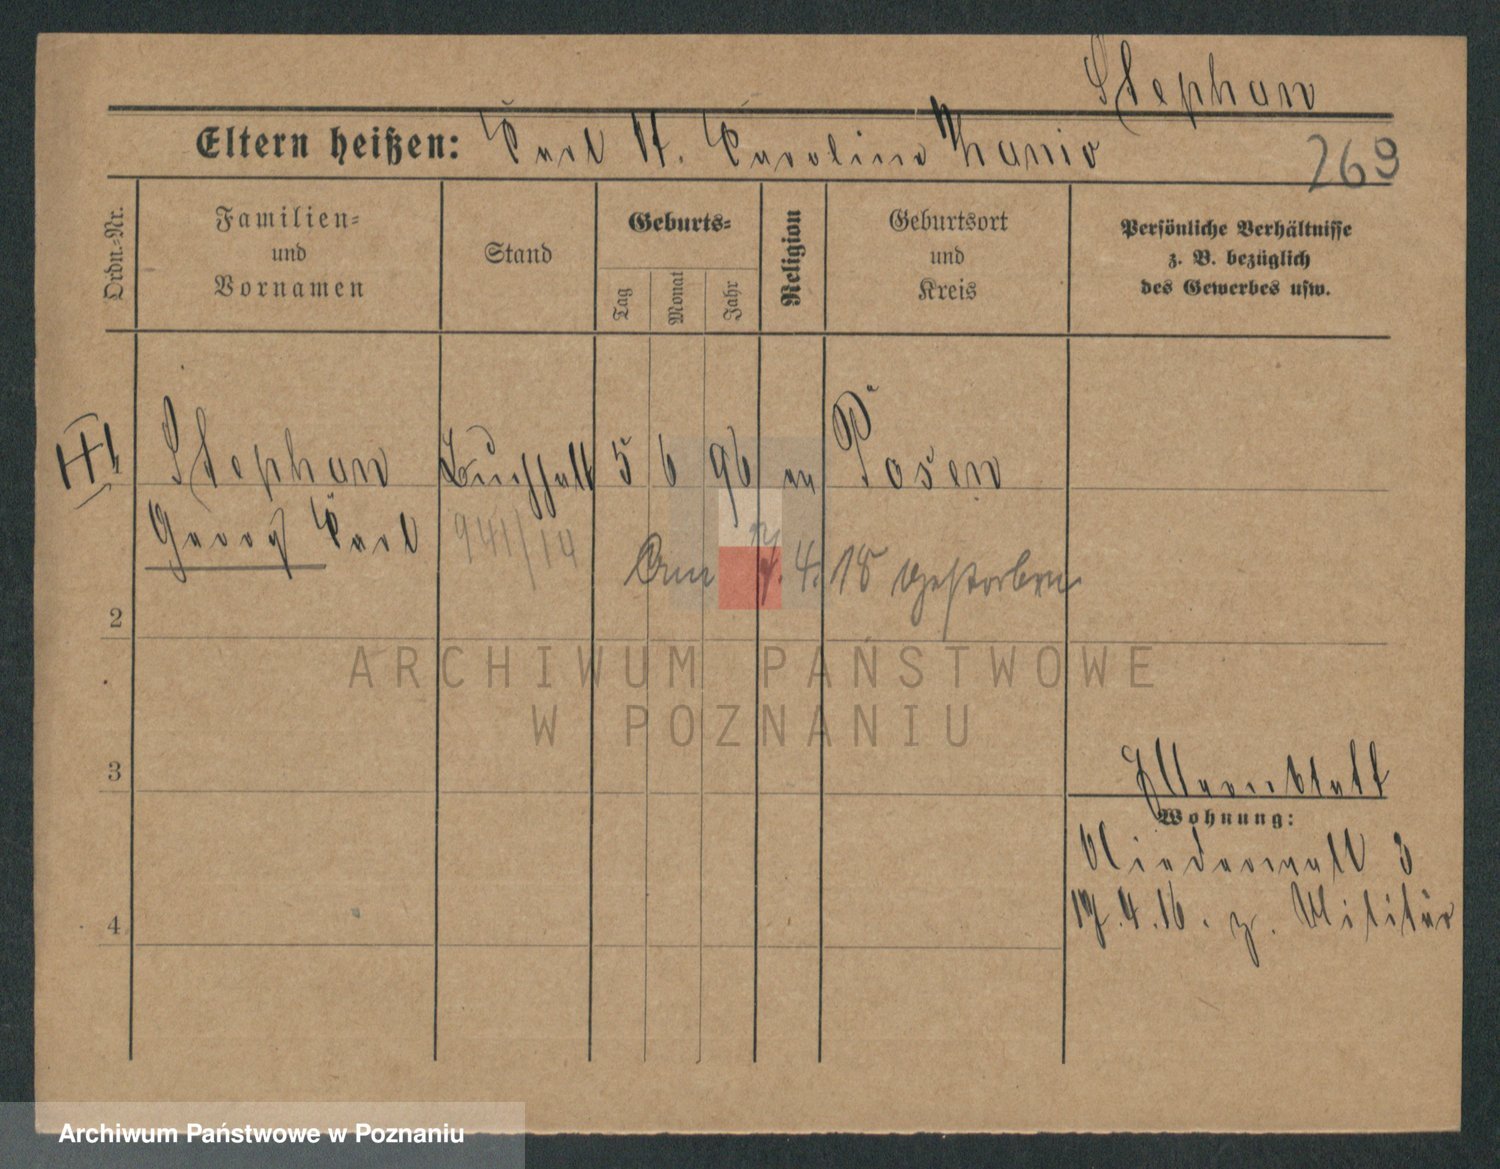 Stephan
Eltern heißen: Carl u. Caroline Hanio
269
Ordn.-Nr.
Familien-
und
Vornamen
Stand
Geburts-
Tag
Monat
Jahr
Religion
Geburtsort
und
Kreis
Persönliche Verhältnisse
z. B. bezüglich
des Gewerbes usw.
Stephan Buchhalt 5 6 96 ev Posen
Georg Carl 941/14
Am 7.4.18 gestorben
2
3
4
Wohnung:
Niederwall 3
17.4.16. z. Militär
ARCHIWUM PAŃSTWOWE
W POZNANIU
Archiwum Państwowe w Poznaniu